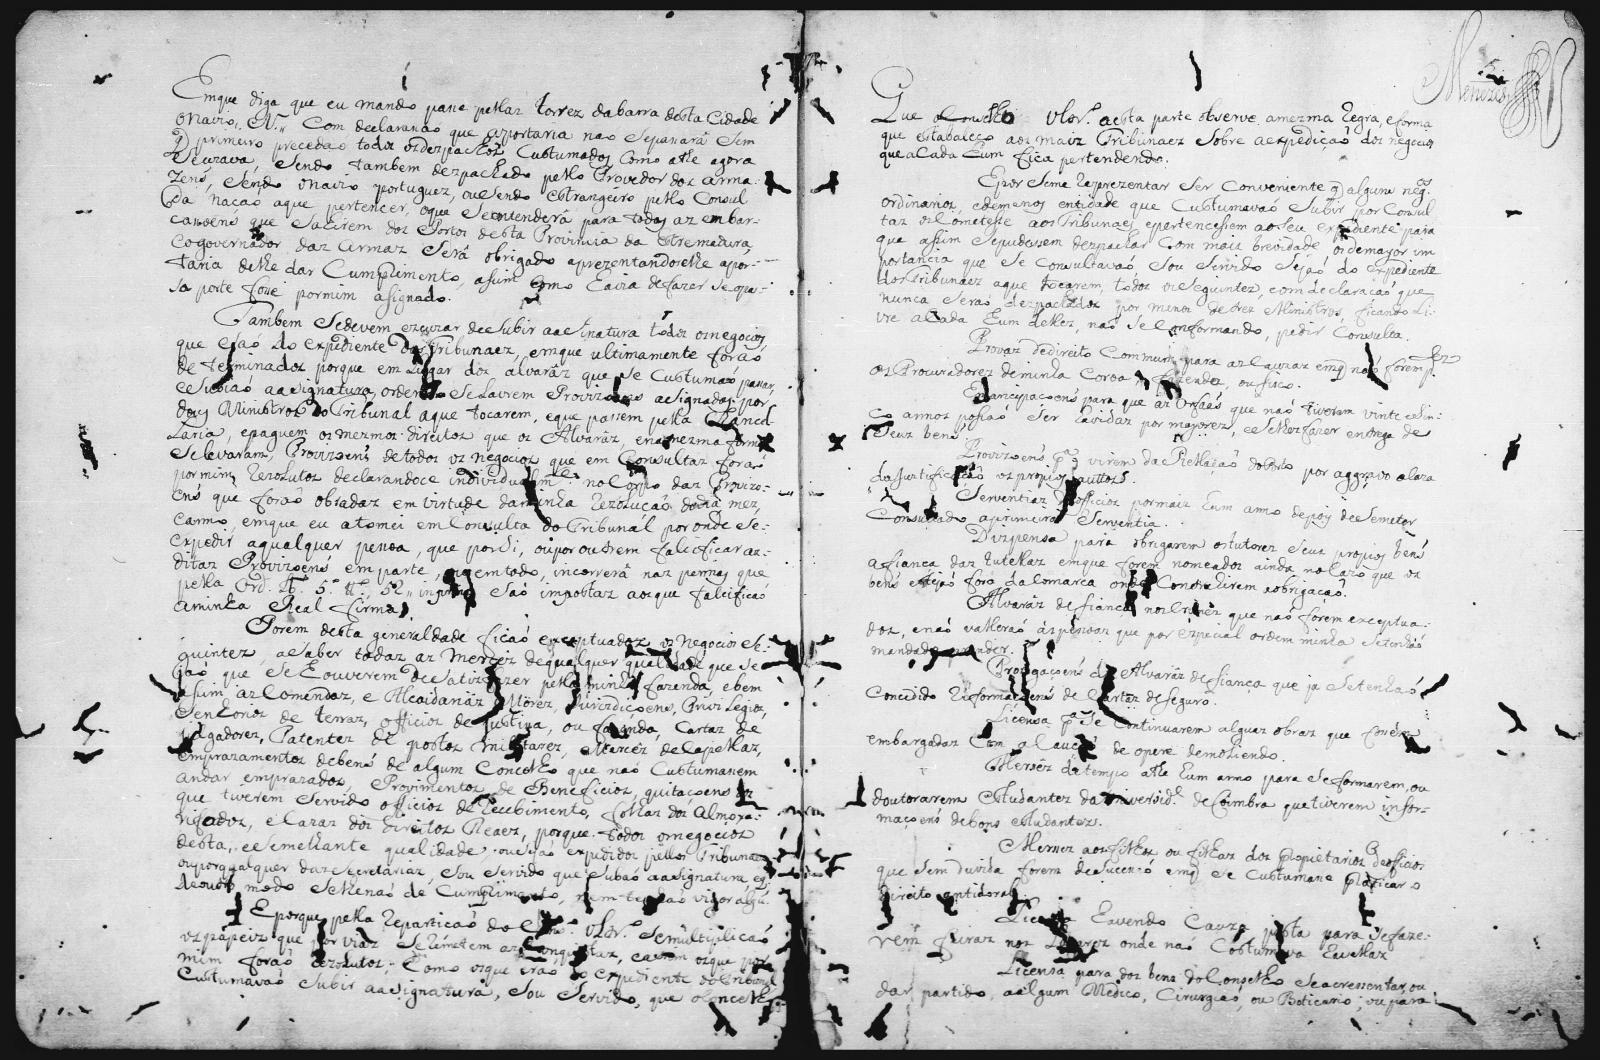 Emque diga que eu mando passe pellas torrez da barra desta Cidade
o navio N. Com declaração que a portaria não se passará sem
primeiro precedão todos os despachos Custumados Como athe agora
se uzava, sendo tambem despachado pello Provedor dos arma-
zens, sendo o navio portuguez, ou sendo estrangeiro pello Consul
da nação a que pertencer, o que se entenderá para todas as embar-
caçoens que sahirem dos Portos desta Provincia da estremadura
e o governador das armas será obrigado aprezentandoselhe a por-
taria de lhe dar Cumprimento, assim Como havia de fazer se o pa-
sa porte fose por mim asignado.
Tambem se devem escuzar de subir aasinatura todos os negocios
que são do expediente dos Tribunaez, em que ultimamente forão
determinados porque em lugar dos alvaráz que se Custumão passar,
e subião aasignatura, ordeno se lavrem Provizoens asignadas por
dous Ministros do Tribunal a que tocarem, e que passem pella Chancel-
laria, e paguem os mezmos direitos que os Alvaráz, e na mezma forma
se lavraram Provizoens de todos os negocios que em Consultas forão
por mim rezolutos declarandoce individualmte no Corpo das Provizo-
ens que forão obradas em virtude da minha rezolução do dia mez,
e anno, em que eu a tomei em Consulta do Tribunal por onde se
expedir a qualquer pessoa, que por si, ou por outrem falcificar as
ditas Provizoens em parte, ou em todo, incorrerá nas pennas que
pella Ord. L. 5. tt. 52 in princ. são impostas aos que falcificão
a minha Real firma.
Porem desta generalidade ficão exceptuados os Negocios se-
guintez, a saber todas as Mercez de qualquer qualidade que se
jão que se houverem de satisfazer pella minha fazenda, e bem
asim as Comendas, e Alcaidarias Mores, Jurizdiçoens, Privilegios,
Senhorios de terras, officios de justiça, ou fazenda, Cartas de
julgadores, Patentes de postos militares, Mercez de Capellas,
emprazamentos de bens de algum Concelho que não Custumassem
andar emprazados, Provimentos de Beneficios, quitaçoens dos
que tiverem servido officios de Recebimento, folhas dos Almoxa-
rifados, e Cazas dos direitos Reaes, porque todos os negocios
desta, e semelhante qualidade, ou sejão expedidos pellos Tribunaes
ou por qualquer das secretarias, sou servido que subão aasignatura, e
de outro modo se lhe não dê Cumprimento, nem tenhão vigor algũ.
E porque pella repartição do Consº. Vltrº. se multiplicão
os papeis que por vias se remetem as Conquistas, e assim os que por
mim forão rezolutos, Como os que erão do expediente do Tribunal
Custumavão subir aasignatura, sou servido, que o Concelho
Menezes
Que o Conselho Vltrº. nesta parte observe a mezma regra, e forma
que estabaleço aos mais Tribunaes sobre a expedição dos negocios
que a Cada hum fica pertendendo.
E por se me reprezentar ser Conveniente q alguns neg.os
ordinarios, e de menos entidade que Custumavão subir por Consul-
tas se Cometese aos Tribunaes e pertencessem ao seu expediente para
que assim se pudessem despachar Com mais brevidade os de mayor im
portancia que se Consultavão, sou servido sejão do expediente
dos Tribunaes a que tocarem, todos os seguintes, com declaração que
nunca serão despachados por menos de trez Ministros, ficando li-
vre a Cada hum delles, não se Conformando, pedir Consulta.
Provas de direito Commum para as Causas em q não forem p.tes
os Procuradores de minha Coroa, fazenda, ou fisco.
Emancipaçoens para que as Orfãs que não tiverem vinte e sin-
co annos possão ser havidas por mayores, e se lhes fazer entrega de
seus bens.
Provizoens pª. virem da Rellação do Porto por aggravo a Caza
da Justificação os propios auttos.
Serventias de officios por mais hum anno depois de se me ter
Consultado a primeira serventia.
Dizpensa para obrigarem os tutores seus propios bens
a fiança das tutellas em que forem nomeados ainda no Cazo que os
bens estejão fora da Comarca onde Contrahirem a obrigação.
Alvaráz de fiança nos Crimes que não forem exceptua-
dos, e não valherão ás pessoas que por especial ordem minha se tenhão
mandado prender.
Prorogaçoens de Alvaráz de fiança que ja se tenhão
Concedido reformaçoens de Cartas de seguro.
Licensa pª. se Continuarem alguas obras que forem
embargadas Com a Caução de opere demoliendo.
Mercez de tempo athe hum anno para se formarem, ou
doutorarem Estudantes da Universid.e de Coimbra que tiverem infor-
maçoens de bons estudantes.
Mercez aos filhos ou filhas dos Propietarios de officios
que sem duvida forem de sucenção em q se Custumasse praticar o
direito antidoral.
Licensa havendo Cauza justa para se faze-
rem feiras nos Lugares onde não Costumava havellas
Licensa para dos bens do Conselho se acressentar, ou
dar partido, a algum Medico, Cirurgião, ou Boticario, ou para